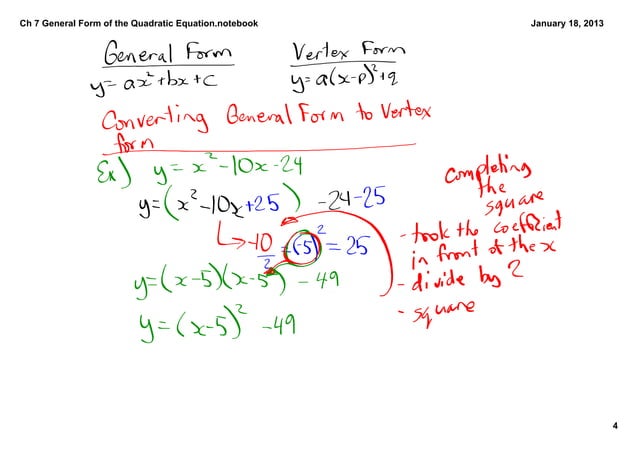 Ch 7 General Form of the Quadratic Equation.notebook
January 18, 2013
General Form
Vertex Form
y = ax²+bx+c
y = a(x-p)²+q
Converting General Form to Vertex
form
Ex) y = x²-10x-24
y=(x²-10x+25 ) -24-25
-10/2 = (-5)² = 25
y=(x-5)(x-5) -49
y=(x-5)² -49
completing
the
square
- took the coefficient
in front of the x
- divide by 2
- square
4